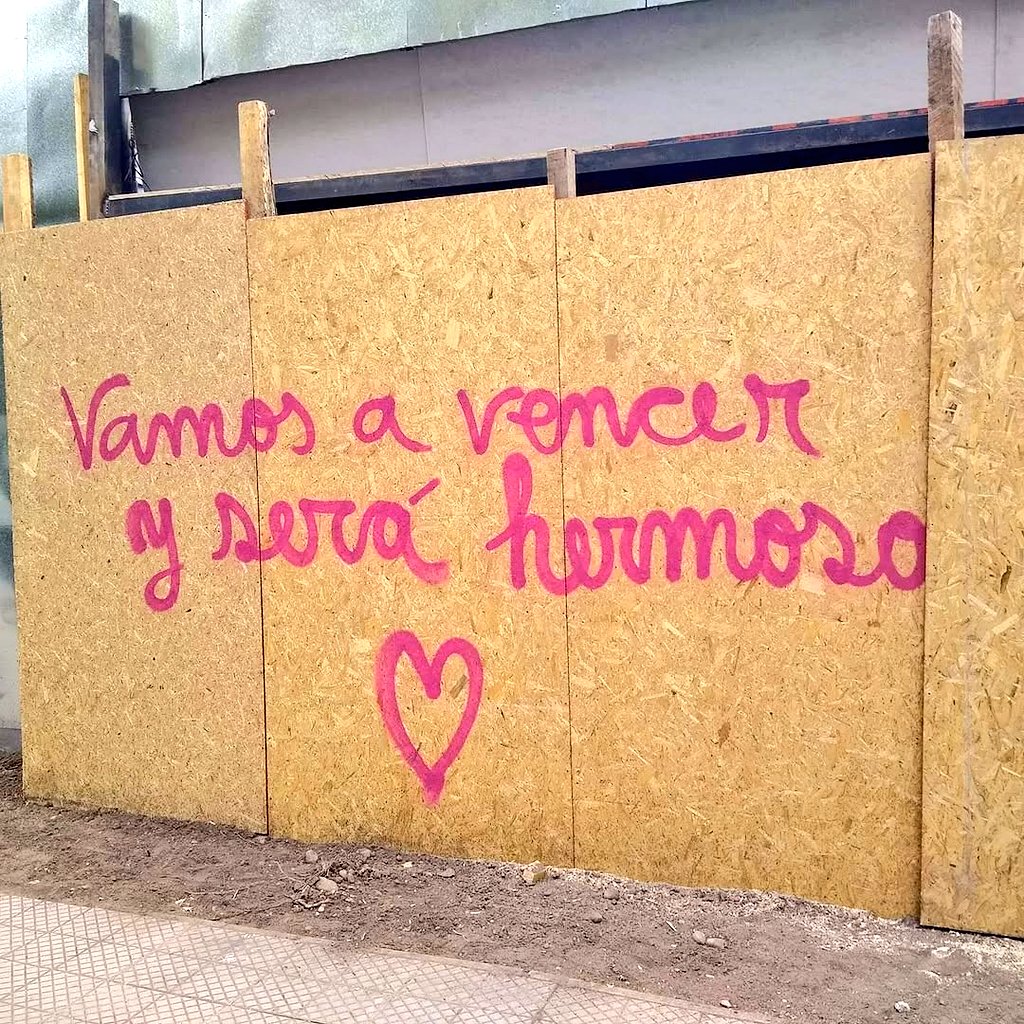 Vamos a vencer
y será hermoso